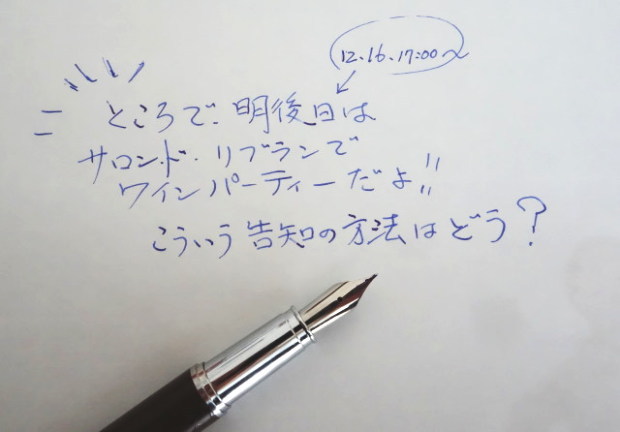 12.16.17:00〜
ところで、明後日は
サロンド・リブランで
ワインパーティーだよ!!
こういう告知の方法はどう?